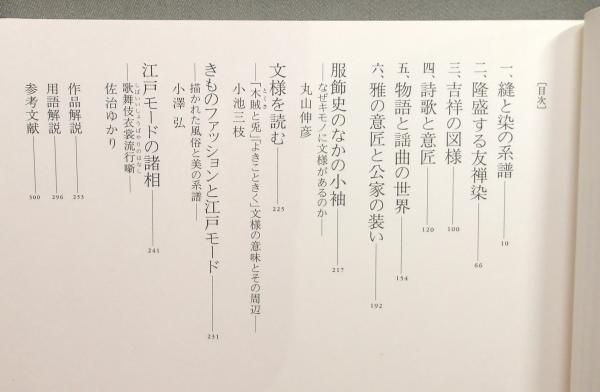 [目次]
一、縫と染の系譜 10
二、隆盛する友禅染 66
三、吉祥の図様 100
四、詩歌と意匠 120
五、物語と謡曲の世界 154
六、雅の意匠と公家の装い 192
服飾史のなかの小袖 217
なぜキモノに文様があるのか
丸山伸彦
文様を読む 225
「木賊と兎」「よきこときく」文様の意味とその周辺
小池三枝
きものファッションと江戸モード 231
描かれた風俗と美の系譜
小澤 弘
江戸モードの諸相 241
歌舞伎衣裳流行噺
佐治ゆかり
作品解説 253
用語解説 296
参考文献 300